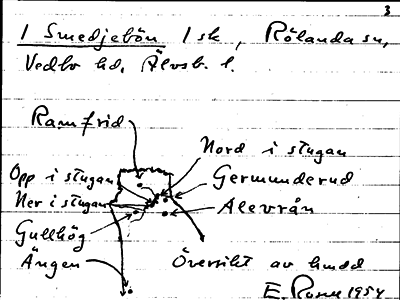 3
1 Smedjebön 1 sk, Rölanda sn,
Vedbo hd, Älvsb. l.
Ramfrid
Nord i stugan
Opp i stugan
Germunderud
Ner i stugan
Alevrån
Gullhög
Ängen
Översikt av
E. 1954